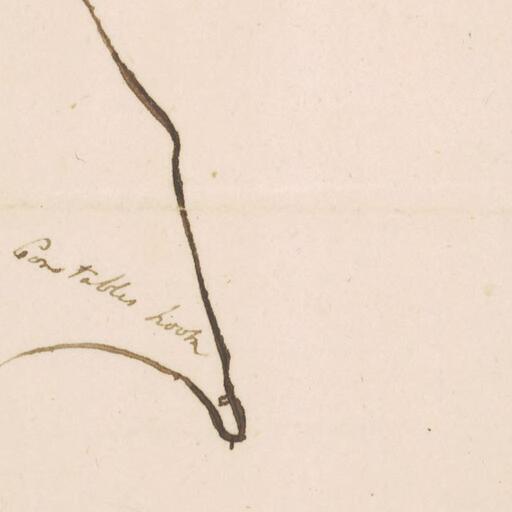 Constables hook